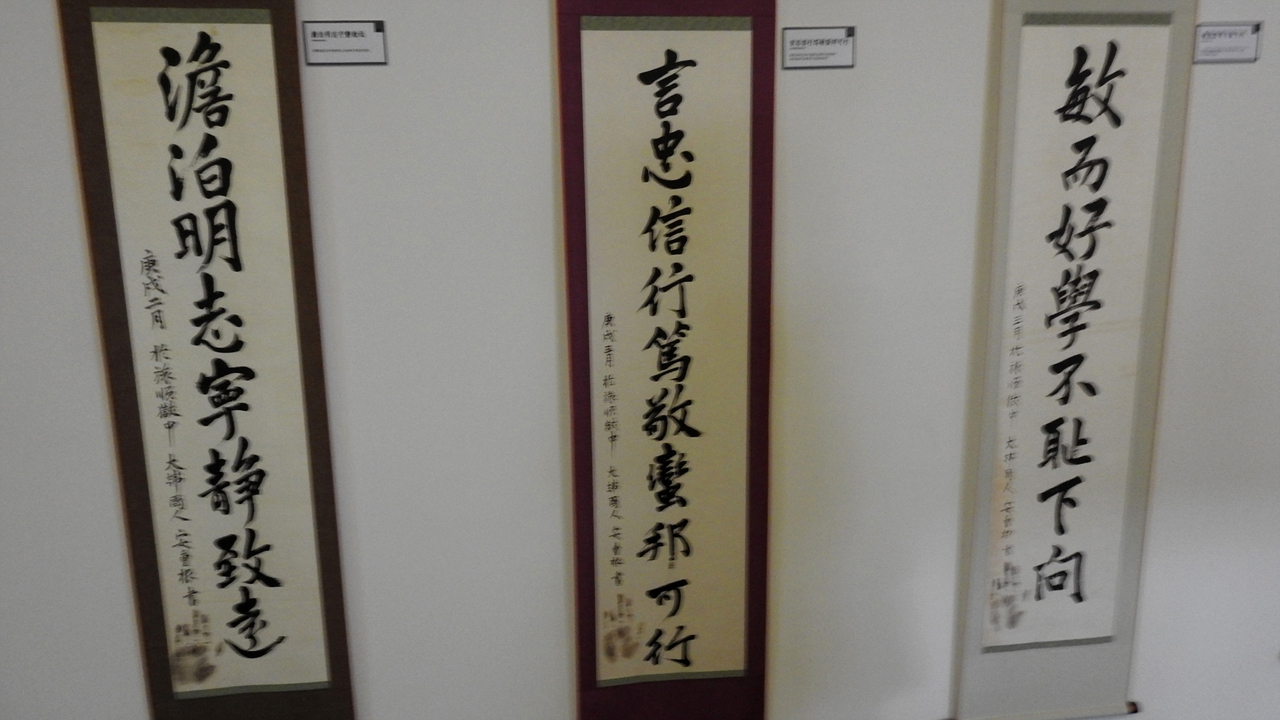 澹泊明志寧静致遠
庚戌二月 於旅順獄中 大韓國人 安重根 書
言忠信行篤敬蠻邦可行
庚戌三月 於旅順獄中 大韓國人 安重根 書
敏而好學不耻下問
庚戌三月 於旅順獄中 大韓國人 安重根 書